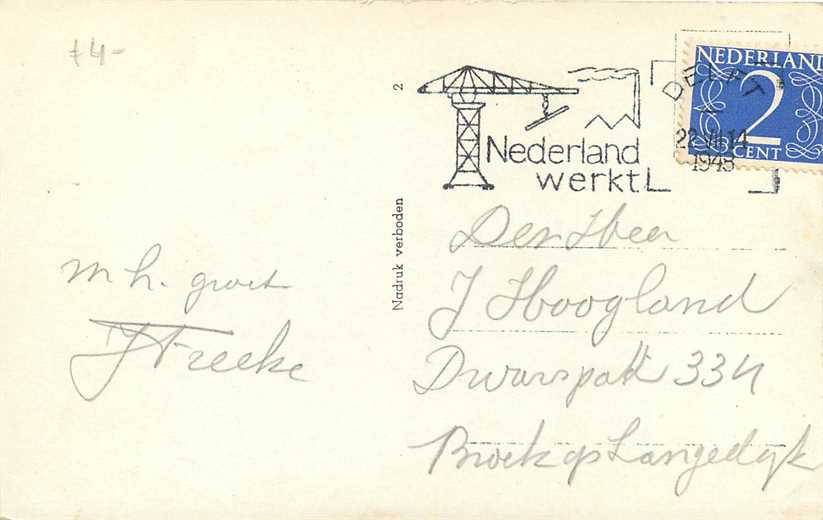 f 4-
2
Nadruk verboden
Nederland
werkt!
DELFT
22.VII.14
1948
NEDERLAND
2
CENT
m h. groet
Den Heer
J Hoogland
Broek op Langedijk